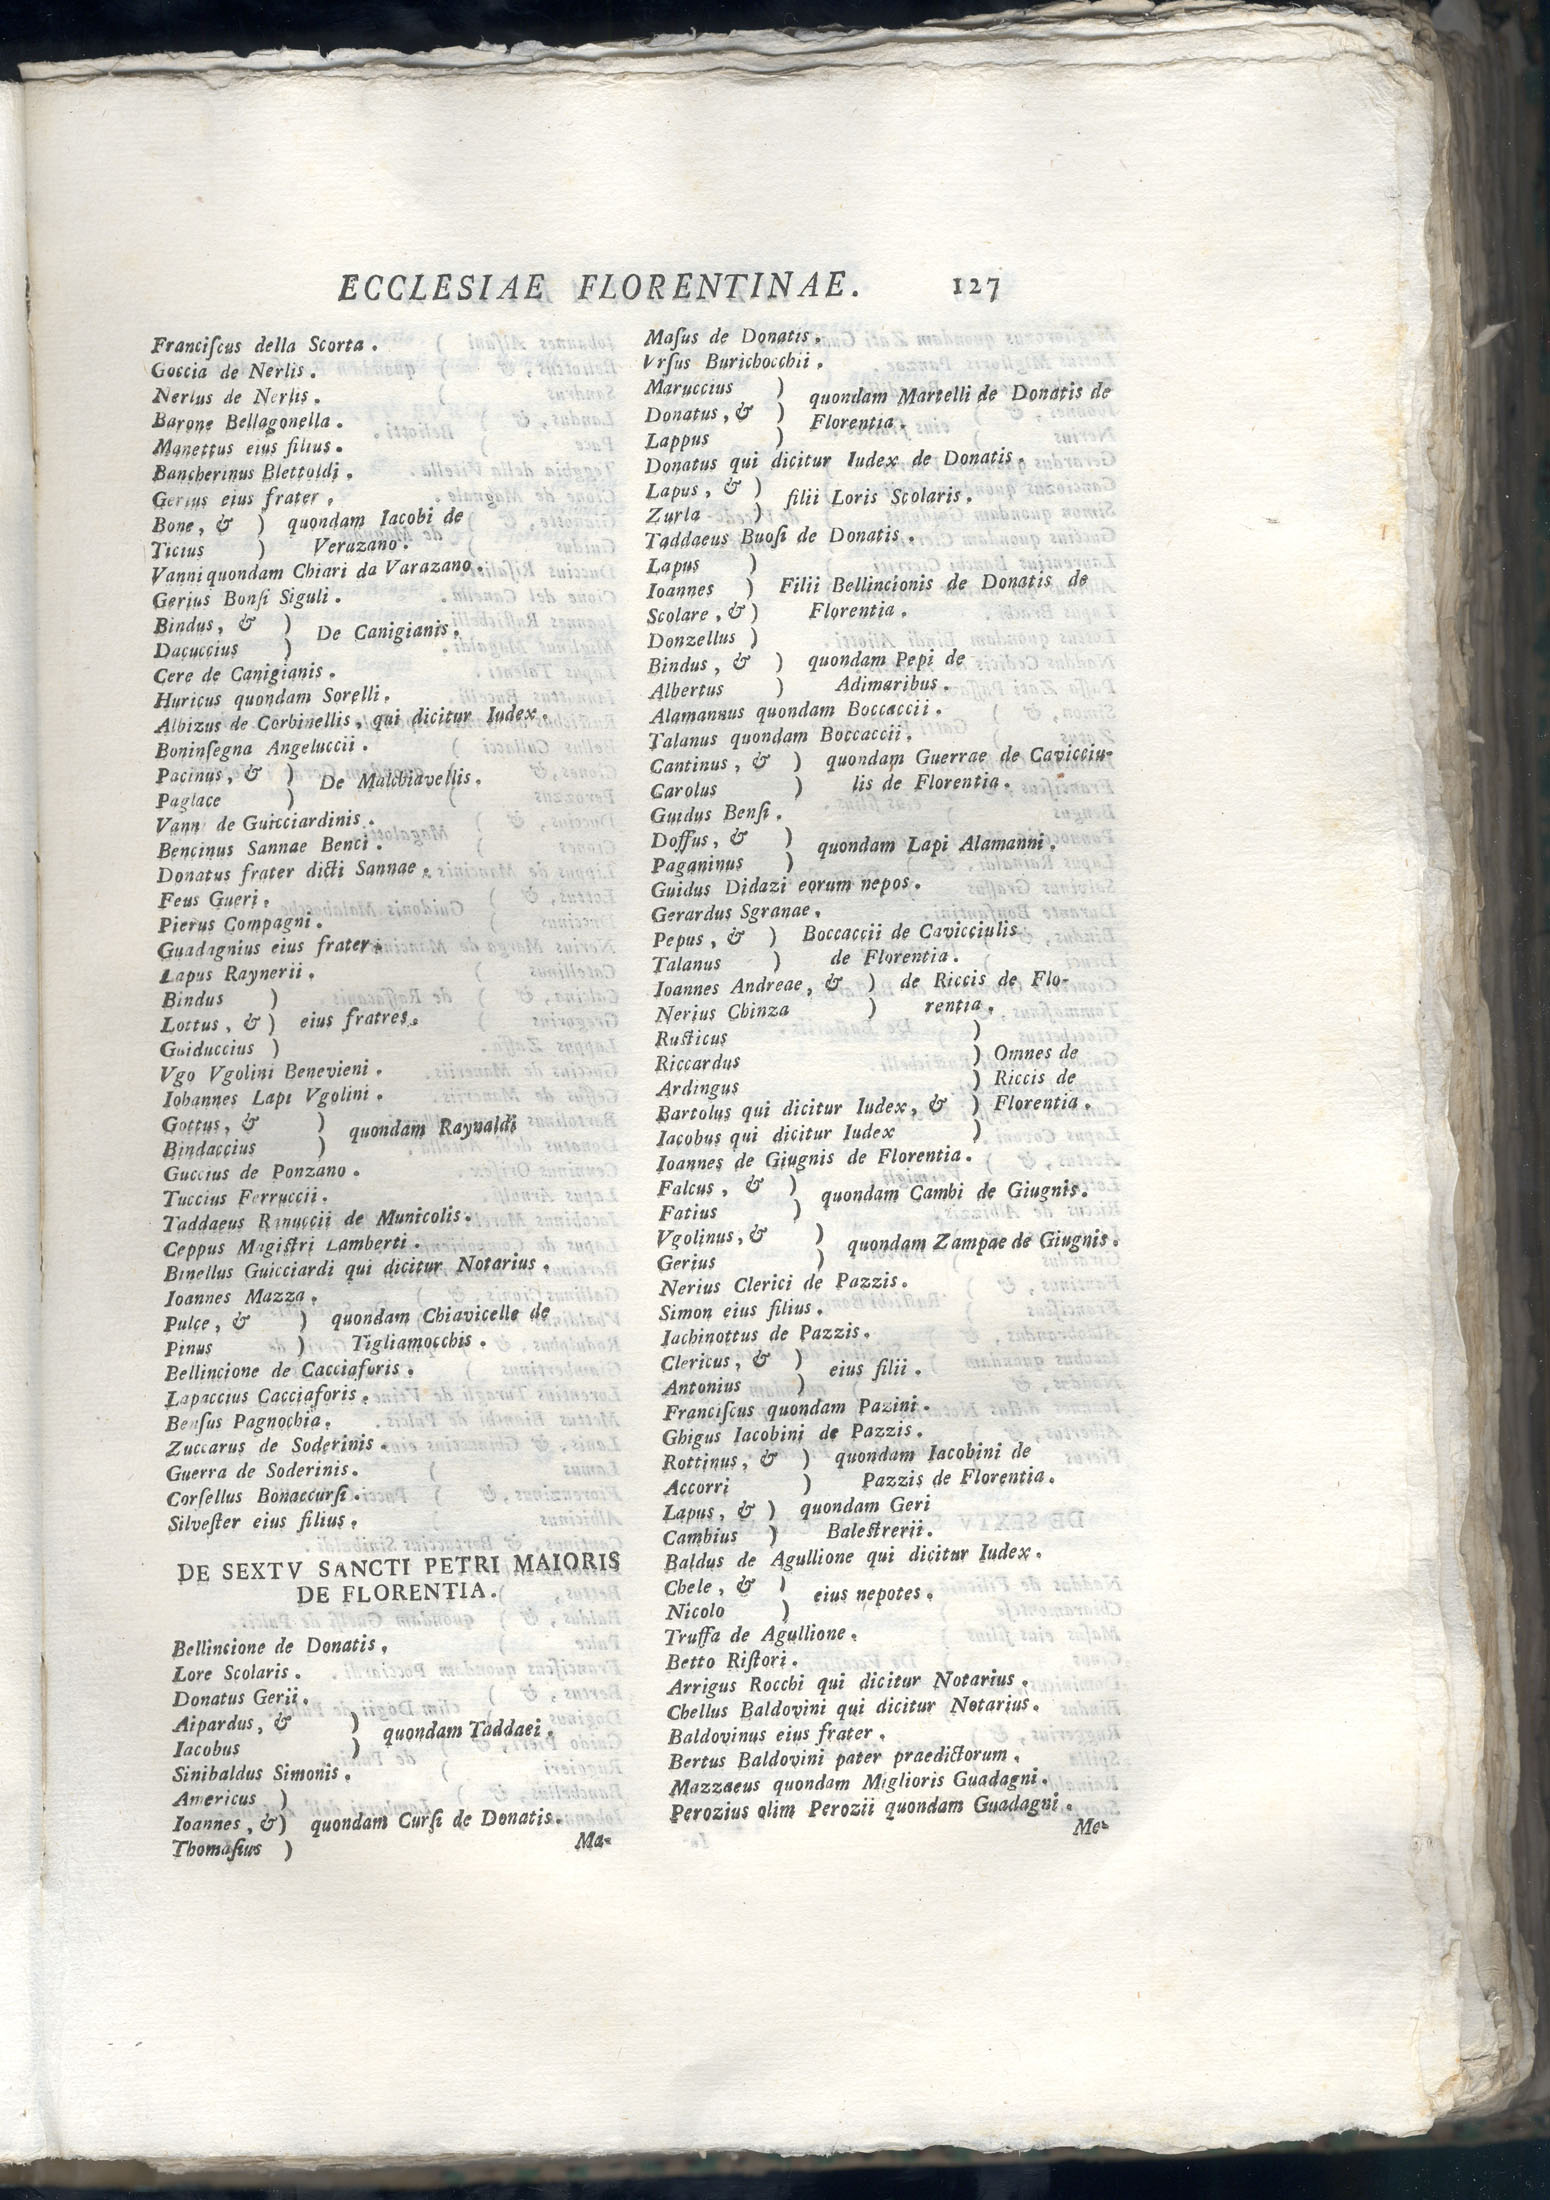 ECCLESIAE FLORENTINAE. 127
Franciſcus della Scorta.
Goccia de Nerlis.
Nerlus de Nerlis.
Barone Bellagonella.
Manettus eius filius.
Bancherinus Blettoldi.
Gerius eius frater.
Bone, & ) quondam Iacobi de
Ticius ) Verazano.
Vanni quondam Chiari da Varazano.
Gerius Bonſi Siguli.
Bindus, & )
De Canigianis.
Dacuccius )
Cere de Canigianis.
Huricus quondam Sorelli.
Albizus de Corbinellis, qui dicitur Iudex.
Boninſegna Angeluccii.
Pacinus, & )
De Malchiavellis.
Paglace )
Vanni de Guicciardinis.
Bencinus Sannae Benci.
Donatus frater dicti Sannae.
Feus Gueri.
Pierus Compagni.
Guadagnius eius frater.
Lapus Raynerii.
Bindus )
Lottus, & ) eius fratres.
Guiduccius )
Vgo Vgolini Benevieni.
Iohannes Lapi Vgolini.
Gottus, & )
quondam Raynaldi
Bindaccius )
Guccius de Ponzano.
Tuccius Ferruccii.
Taddaeus Ranuccii de Municolis.
Ceppus Magiſtri Lamberti.
Binellus Guicciardi qui dicitur Notarius.
Ioannes Mazza.
Pulce, & ) quondam Chiavicelle de
Pinus ) Tigliamocchis.
Bellincione de Cacciaforis.
Lapaccius Cacciaforis.
Benſus Pagnochia.
Zuccarus de Soderinis.
Guerra de Soderinis.
Corſellus Bonaccurſi.
Silveſter eius filius.
DE SEXTV SANCTI PETRI MAIORIS
DE FLORENTIA.
Bellincione de Donatis.
Lore Scolaris.
Donatus Gerii.
Aipardus, & )
quondam Taddaei.
Iacobus )
Sinibaldus Simonis.
Americus )
Ioannes, & ) quondam Curſi de Donatis.
Thomaſius )
Ma-
Maſus de Donatis.
Vrſus Burichocchii.
Maruccius ) quondam Martelli de Donatis de
Donatus, & ) Florentia.
Lappus )
Donatus qui dicitur Iudex de Donatis.
Lapus, & )
filii Loris Scolaris.
Zurla )
Taddaeus Buoſi de Donatis.
Lapus )
Ioannes ) Filii Bellincionis de Donatis de
Scolare, & ) Florentia.
Donzellus )
Bindus, & ) quondam Pepi de
Albertus ) Adimaribus.
Alamannus quondam Boccaccii.
Talanus quondam Boccaccii.
Cantinus, & ) quondam Guerrae de Cavicciu-
Carolus ) lis de Florentia.
Guidus Benſi.
Doffus, & )
quondam Lapi Alamanni.
Paganinus )
Guidus Didazi eorum nepos.
Gerardus Sgranae.
Pepus, & ) Boccaccii de Cavicciulis
Talanus ) de Florentia.
Ioannes Andreae, & ) de Riccis de Flo-
Nerius Chinza ) rentia.
Ruſticus )
Riccardus ) Omnes de
Ardingus ) Riccis de
Bartolus qui dicitur Iudex, & ) Florentia.
Iacobus qui dicitur Iudex )
Ioannes de Giugnis de Florentia.
Falcus, & )
quondam Cambi de Giugnis.
Fatius )
Vgolinus, & )
quondam Zampae de Giugnis.
Gerius )
Nerius Clerici de Pazzis.
Simon eius filius.
Iachinottus de Pazzis.
Clericus, & )
eius filii.
Antonius )
Franciſcus quondam Pazini.
Ghigus Iacobini de Pazzis.
Rottinus, & ) quondam Iacobini de
Accorri ) Pazzis de Florentia.
Lapus, & ) quondam Geri
Cambius ) Baleſtrerii.
Baldus de Agullione qui dicitur Iudex.
Chele, & )
eius nepotes.
Nicolo )
Truffa de Agullione.
Betto Riſtori.
Arrigus Rocchi qui dicitur Notarius.
Chellus Baldovini qui dicitur Notarius.
Baldovinus eius frater.
Bertus Baldovini pater praedictorum.
Mazzaeus quondam Miglioris Guadagni.
Perozius olim Perozii quondam Guadagni.
Me-